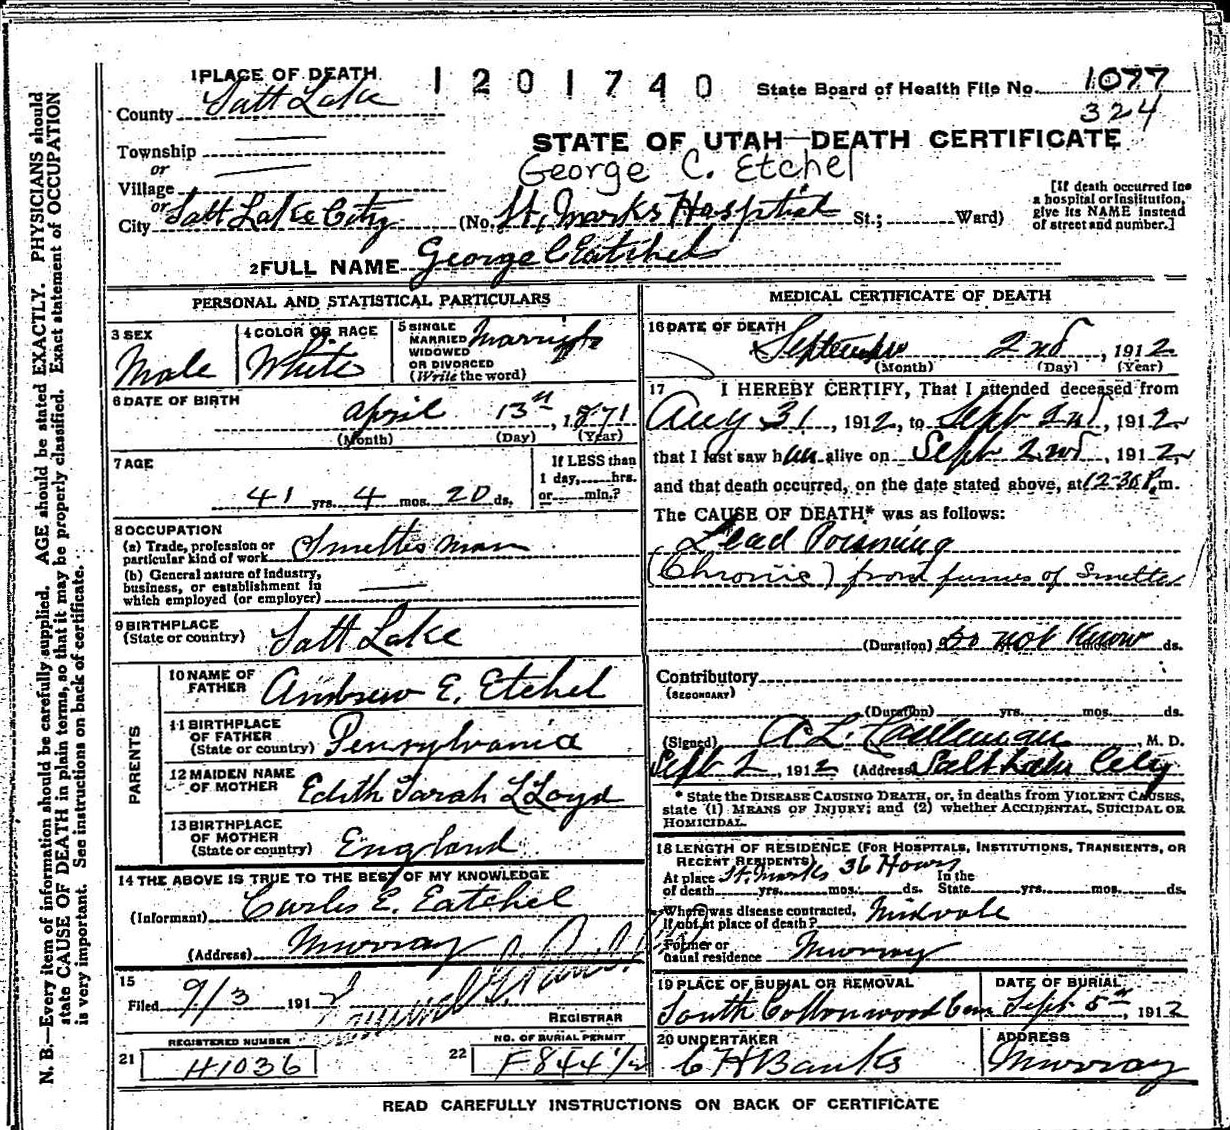 1 PLACE OF DEATH
1201740
State Board of Health File No. 1077
324
County Salt Lake
STATE OF UTAH—DEATH CERTIFICATE
Township
or
George C. Etchel
Village
or
City Salt Lake City (No. St. Marks Hospital St.; Ward)
[If death occurred in a hospital or institution, give its NAME instead of street and number.]
2 FULL NAME George C Eatchel
PERSONAL AND STATISTICAL PARTICULARS
3 SEX Male
4 COLOR OR RACE White
5 SINGLE MARRIED WIDOWED OR DIVORCED (Write the word)
6 DATE OF BIRTH April 13th, 1871
(Month) (Day) (Year)
7 AGE 41 yrs. 4 mos. 20 ds.
If LESS than 1 day, hrs. or min.?
8 OCCUPATION
(a) Trade, profession or particular kind of work Smelter man
(b) General nature of industry, business, or establishment in which employed (or employer)
9 BIRTHPLACE (State or country) Salt Lake
PARENTS
10 NAME OF FATHER Andrew E. Etchel
11 BIRTHPLACE OF FATHER (State or country) Pensylvania
12 MAIDEN NAME OF MOTHER Edith Sarah LLoyd
13 BIRTHPLACE OF MOTHER (State or country) England
14 THE ABOVE IS TRUE TO THE BEST OF MY KNOWLEDGE
(Informant) E. Eatchel
(Address) Murray
15
Filed 9/3 1912
REGISTRAR
21 REGISTERED NUMBER H1036
22 NO. OF BURIAL PERMIT F844½
MEDICAL CERTIFICATE OF DEATH
16 DATE OF DEATH September 2nd, 1912
(Month) (Day) (Year)
17 I HEREBY CERTIFY, That I attended deceased from
Aug 31, 1912, to Sept 2nd, 1912
that I last saw him alive on Sept 2nd, 1912,
and that death occurred, on the date stated above, at 12-30 P.m.
The CAUSE OF DEATH* was as follows:
Lead Poisoning
(Chronic) from fumes of Smelter
(Duration) Do not Know mos. ds.
Contributory
(SECONDARY)
(Duration) yrs. mos. ds.
(Signed) A L. M. D.
Sept 2, 1912 (Address) Salt Lake City
* State the DISEASE CAUSING DEATH, or, in deaths from VIOLENT CAUSES,
state (1) MEANS OF INJURY; and (2) whether ACCIDENTAL, SUICIDAL OR
HOMICIDAL.
18 LENGTH OF RESIDENCE (FOR HOSPITALS, INSTITUTIONS, TRANSIENTS, OR
RECENT RESIDENTS)
At place of death St. Marks 36 Hours yrs. mos. ds. In the State yrs. mos. ds.
Where was disease contracted, if not at place of death? Midvale
Former or usual residence Murray
19 PLACE OF BURIAL OR REMOVAL South Cottonwood Cem
DATE OF BURIAL Sept 5th, 1912
20 UNDERTAKER C H Banks
ADDRESS Murray
READ CAREFULLY INSTRUCTIONS ON BACK OF CERTIFICATE
N. B.—Every item of information should be carefully supplied. AGE should be stated EXACTLY. PHYSICIANS should
state CAUSE OF DEATH in plain terms, so that it may be properly classified. Exact statement of OCCUPATION
is very important. See instructions on back of certificate.